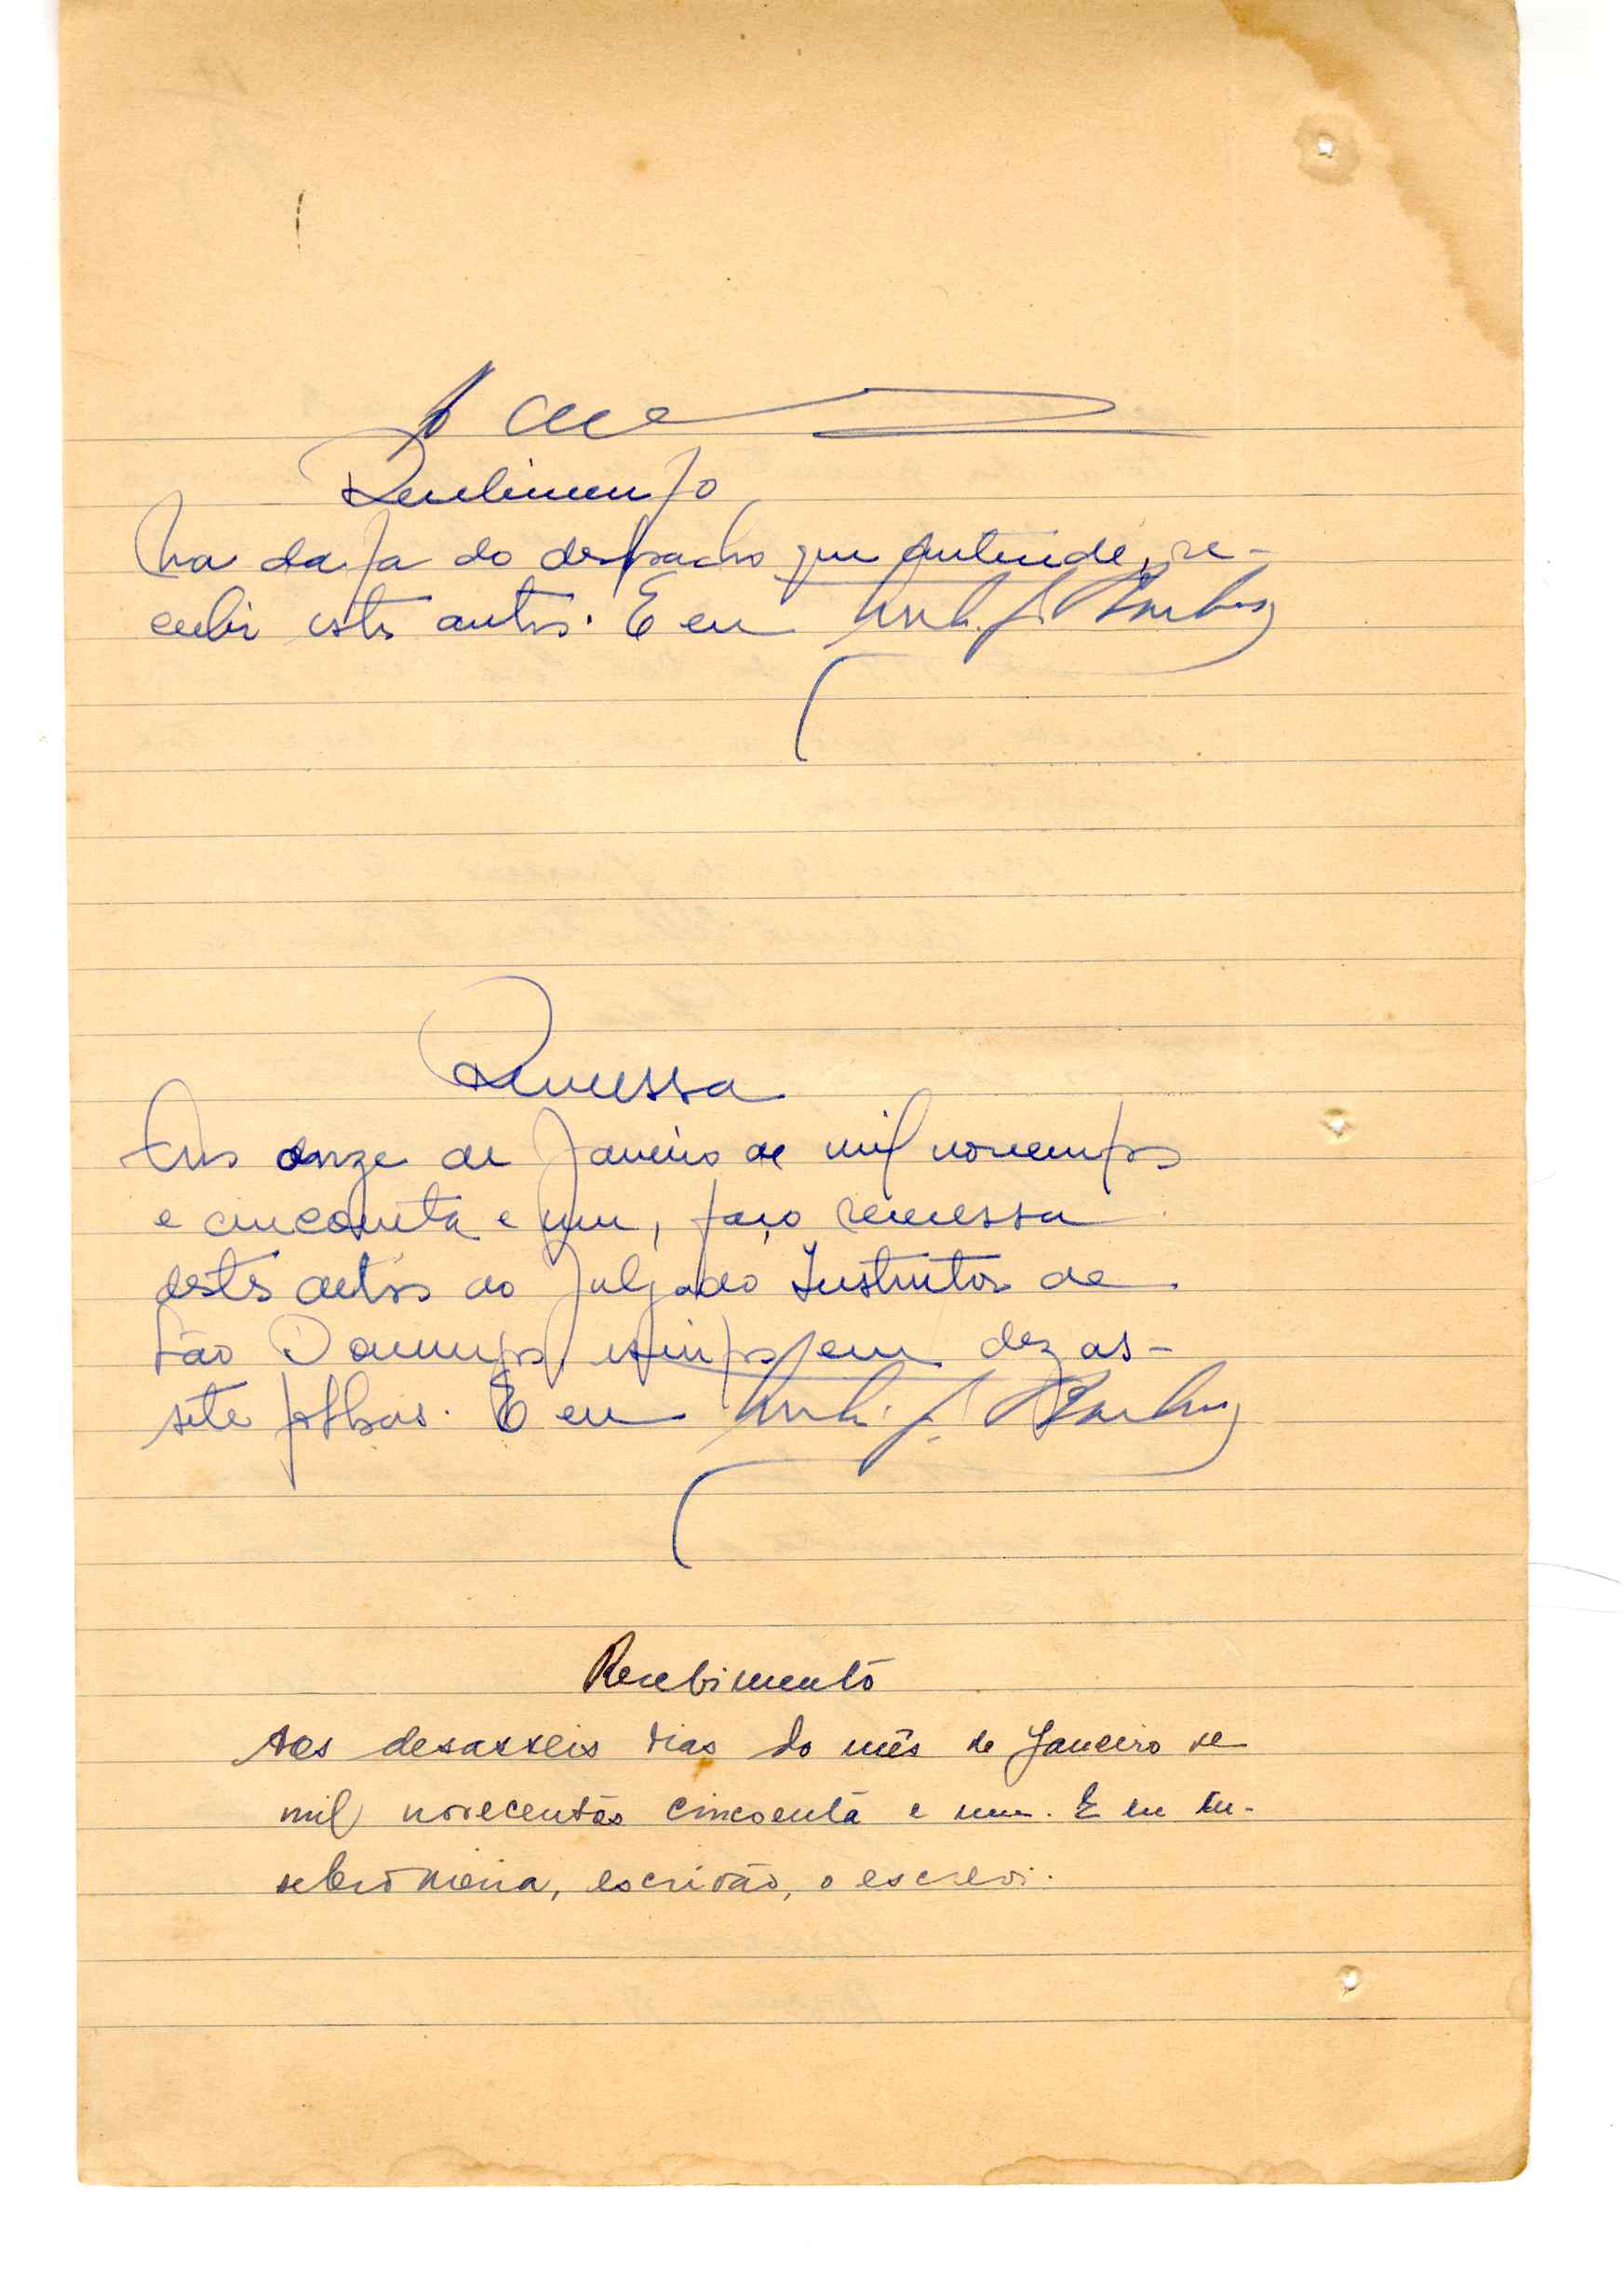 Recebimento
Na data do despacho que antende, re-
cebi estes autos. E eu
Remessa
Aos onze de Janeiro de mil novecentos
e cincoenta e um, faço remessa
destes autos ao Julgado Instrutor de
São Domingos, em dezas-
sete folhas. E eu
Recebimento
Aos desasseis dias do mês de Janeiro de
mil novecentos cincoenta e um. E eu Eu-
sebio Moria, escrivão, o escrevi.